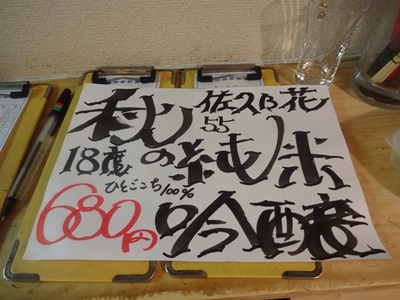 秋 佐久乃花
55
18度 の純米
ひとごこち100%
680円 吟醸